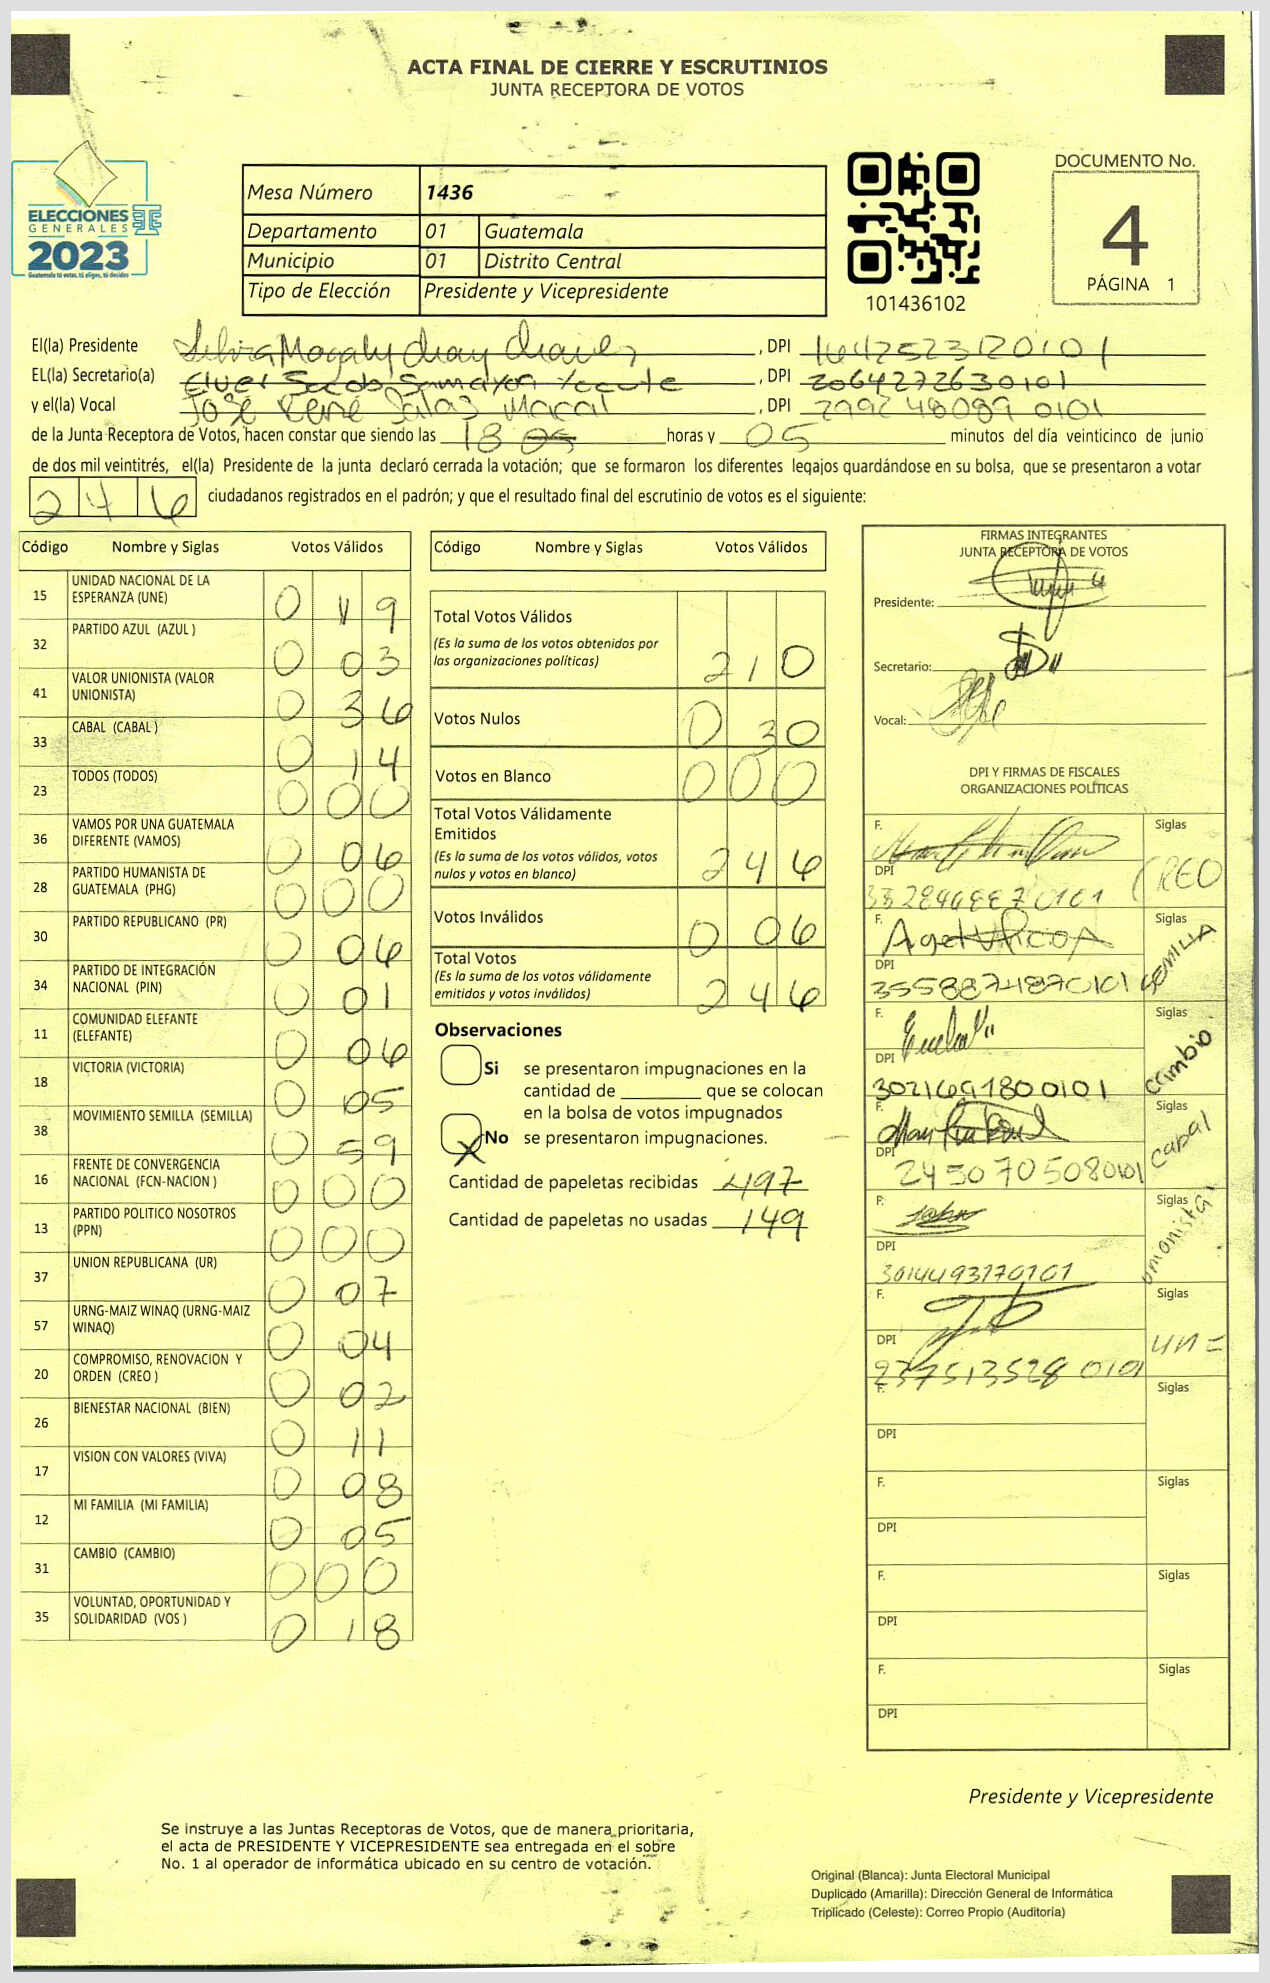 ACTA FINAL DE CIERRE Y ESCRUTINIOS
JUNTA RECEPTORA DE VOTOS
ELECCIONES
GENERALES
2023
Guatemala tú votas, tú eliges, tú decides
Mesa Número 1436
Departamento 01 Guatemala
Municipio 01 Distrito Central
Tipo de Elección Presidente y Vicepresidente
101436102
DOCUMENTO No.
4
PÁGINA 1
El(la) Presidente Silvia Magaly Chay Chavez, DPI 1642523120101
EL(la) Secretario(a) Samayoa, DPI 2064272630101
y el(la) Vocal José René Salaz Macal, DPI 2992480890101
de la Junta Receptora de Votos, hacen constar que siendo las 18 horas y 05 minutos del día veinticinco de junio
de dos mil veintitrés, el(la) Presidente de la junta declaró cerrada la votación; que se formaron los diferentes legajos guardándose en su bolsa, que se presentaron a votar
246 ciudadanos registrados en el padrón; y que el resultado final del escrutinio de votos es el siguiente:
Código Nombre y Siglas Votos Válidos
15 UNIDAD NACIONAL DE LA ESPERANZA (UNE) 0 1 9
32 PARTIDO AZUL (AZUL ) 0 0 3
41 VALOR UNIONISTA (VALOR UNIONISTA) 0 3 6
33 CABAL (CABAL ) 0 1 4
23 TODOS (TODOS) 0 0 0
36 VAMOS POR UNA GUATEMALA DIFERENTE (VAMOS) 0 0 6
28 PARTIDO HUMANISTA DE GUATEMALA (PHG) 0 0 0
30 PARTIDO REPUBLICANO (PR) 0 0 6
34 PARTIDO DE INTEGRACIÓN NACIONAL (PIN) 0 0 1
11 COMUNIDAD ELEFANTE (ELEFANTE) 0 0 6
18 VICTORIA (VICTORIA) 0 0 5
38 MOVIMIENTO SEMILLA (SEMILLA) 0 5 9
16 FRENTE DE CONVERGENCIA NACIONAL (FCN-NACION ) 0 0 0
13 PARTIDO POLITICO NOSOTROS (PPN) 0 0 0
37 UNION REPUBLICANA (UR) 0 0 7
57 URNG-MAIZ WINAQ (URNG-MAIZ WINAQ) 0 0 4
20 COMPROMISO, RENOVACION Y ORDEN (CREO ) 0 0 2
26 BIENESTAR NACIONAL (BIEN) 0 1 1
17 VISION CON VALORES (VIVA) 0 0 8
12 MI FAMILIA (MI FAMILIA) 0 0 5
31 CAMBIO (CAMBIO) 0 0 0
35 VOLUNTAD, OPORTUNIDAD Y SOLIDARIDAD (VOS ) 0 1 8
Código Nombre y Siglas Votos Válidos
Total Votos Válidos
(Es la suma de los votos obtenidos por
las organizaciones políticas) 2 1 0
Votos Nulos 0 3 0
Votos en Blanco 0 0 0
Total Votos Válidamente
Emitidos
(Es la suma de los votos válidos, votos
nulos y votos en blanco) 2 4 6
Votos Inválidos 0 0 6
Total Votos
(Es la suma de los votos válidamente
emitidos y votos inválidos) 2 4 6
Observaciones
Si se presentaron impugnaciones en la
cantidad de ________ que se colocan
en la bolsa de votos impugnados
X No se presentaron impugnaciones.
Cantidad de papeletas recibidas 497
Cantidad de papeletas no usadas 149
FIRMAS INTEGRANTES
JUNTA RECEPTORA DE VOTOS
Presidente:
Secretario:
Vocal:
DPI Y FIRMAS DE FISCALES
ORGANIZACIONES POLÍTICAS
F. Siglas
DPI CREO
F. Siglas
DPI 3558874870101 SEMILLA
F. Siglas
DPI 3021691800101 cambio
F. Siglas
DPI 2450705080101 cabal
F. Siglas
DPI 3014493170101 unionista
F. Siglas
DPI 2375135280101 une
F. Siglas
DPI
F. Siglas
DPI
F. Siglas
DPI
F. Siglas
DPI
Presidente y Vicepresidente
Se instruye a las Juntas Receptoras de Votos, que de manera prioritaria,
el acta de PRESIDENTE Y VICEPRESIDENTE sea entregada en el sobre
No. 1 al operador de informática ubicado en su centro de votación.
Original (Blanca): Junta Electoral Municipal
Duplicado (Amarilla): Dirección General de Informática
Triplicado (Celeste): Correo Propio (Auditoría)